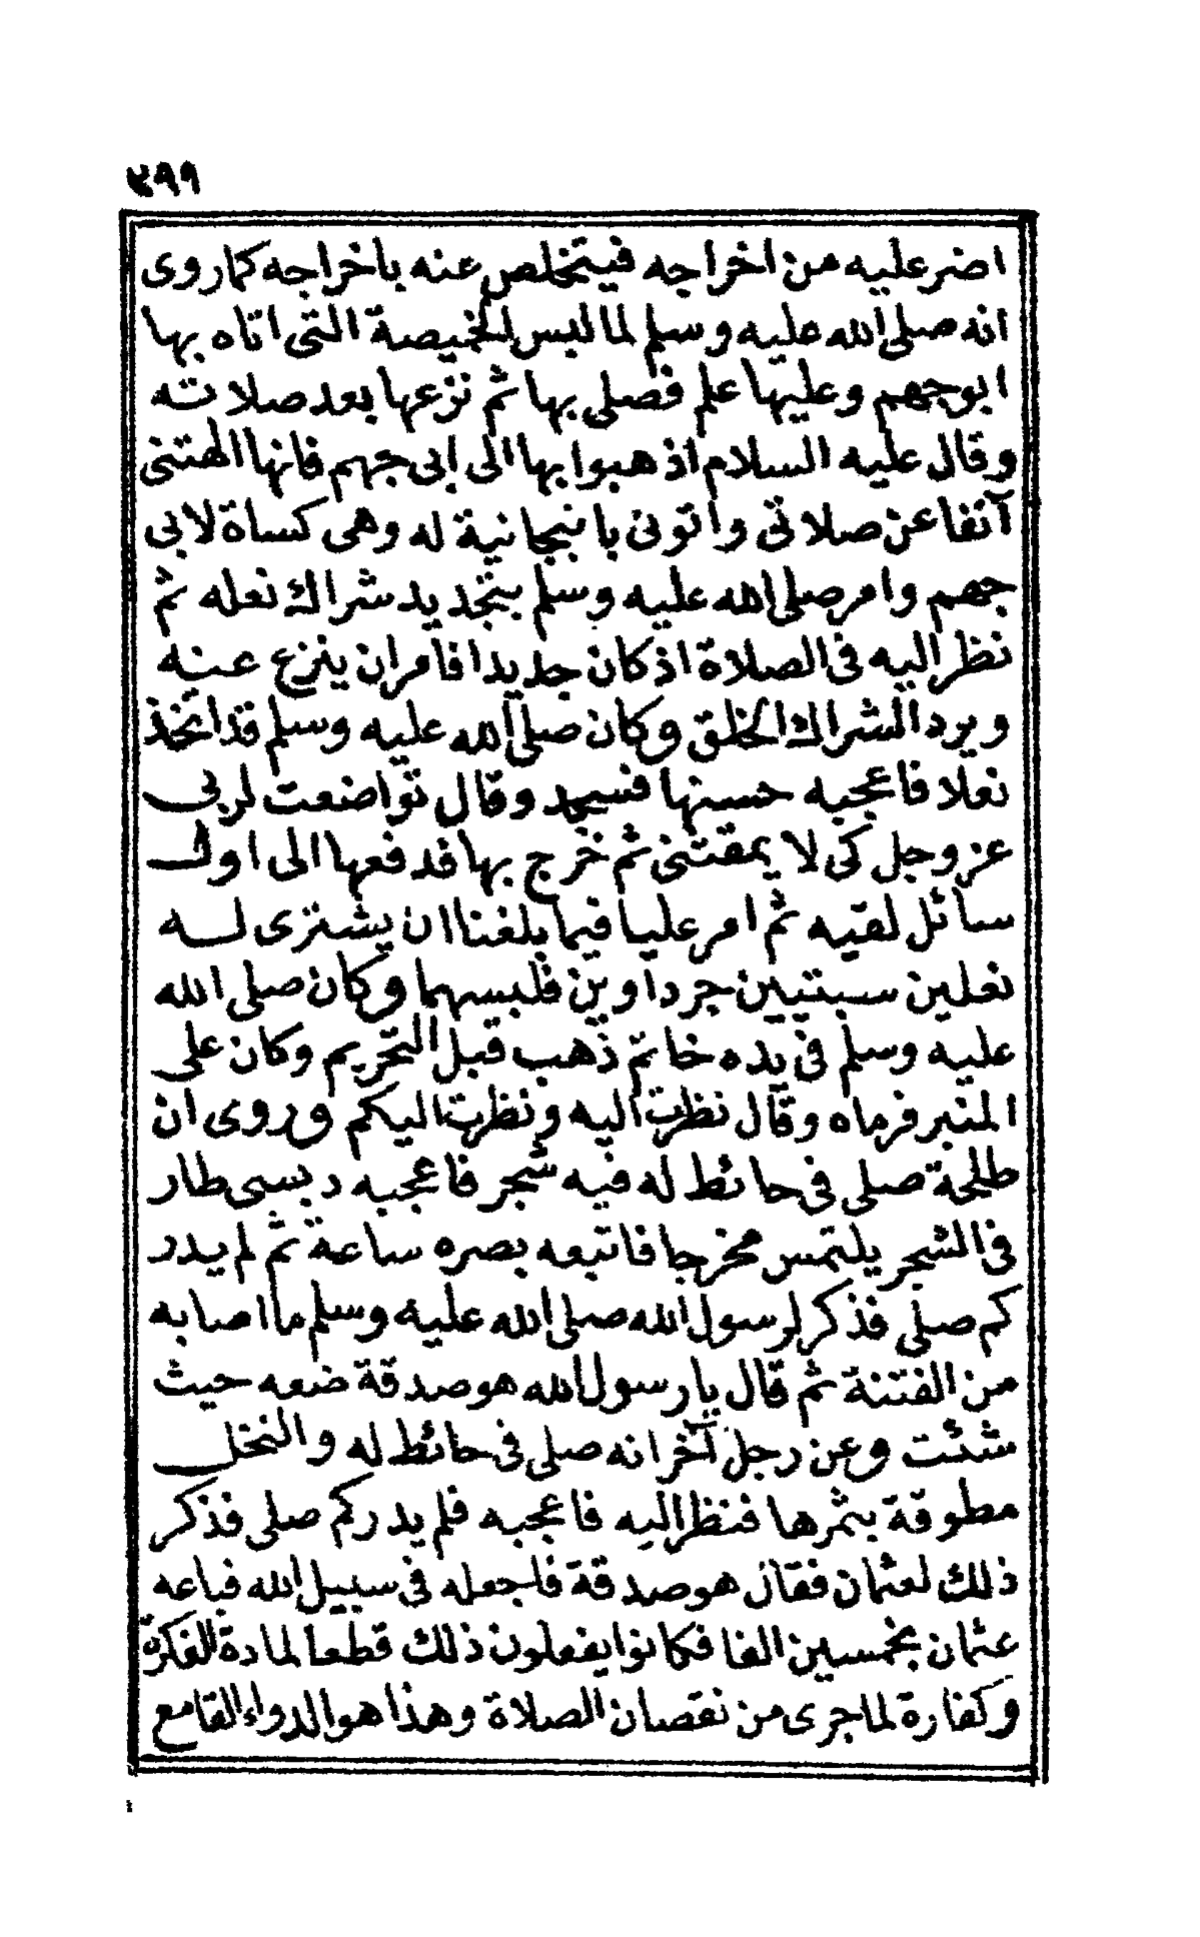 ٣٩٩
اضر عليه من اخراجه فيتخلص عنه باخراجه كما روى
انه صلى الله عليه وسلم لما لبس الخميصة التى اتاه بها
ابو جهم وعليها علم فصلى بها ثم نزعها بعد صلاته
وقال عليه السلام اذهبوا بها الى ابى جهم فانها الهتنى
آنفا عن صلاتى واتونى بانبجانية له وهى كساة لابى
جهم وامر صلى الله عليه وسلم بتجديد شراك نعله ثم
نظر اليه فى الصلاة اذ كان جديدا فامر ان ينزع عنه
ويرد الشراك الخلق وكان صلى الله عليه وسلم قد اتخذ
نعلا فاعجبه حسنها فسجد وقال تواضعت لربى
عز وجل كى لا يمقتنى ثم خرج بها فدفعها الى اول
سائل لقيه ثم امر عليا فيما بلغنا ان يشترى له
نعلين سبتيين جرداوين فلبسهما وكان صلى الله
عليه وسلم فى يده خاتم ذهب قبل التحريم وكان على
المنبر فرماه وقال نظرت اليه ونظرت اليكم وروى ان
طلحة صلى فى حائط له فيه شجر فاعجبه دبسى طار
فى الشجر يلتمس مخرجا فاتبعه بصره ساعة ثم لم يدر
كم صلى فذكر لرسول الله صلى الله عليه وسلم ما اصابه
من الفتنة ثم قال يا رسول الله هو صدقة ضعه حيث
شئت وعن رجل آخر انه صلى فى حائط له والنخل
مطوقة بثمرها فنظر اليه فاعجبه فلم يدر كم صلى فذكر
ذلك لعثمان فقال هو صدقة فاجعله فى سبيل الله فباعه
عثمان بخمسين الفا فكانوا يفعلون ذلك قطعا لمادة الفكرة
وكفارة لما جرى من نقصان الصلاة وهذا هو الدواء القامع